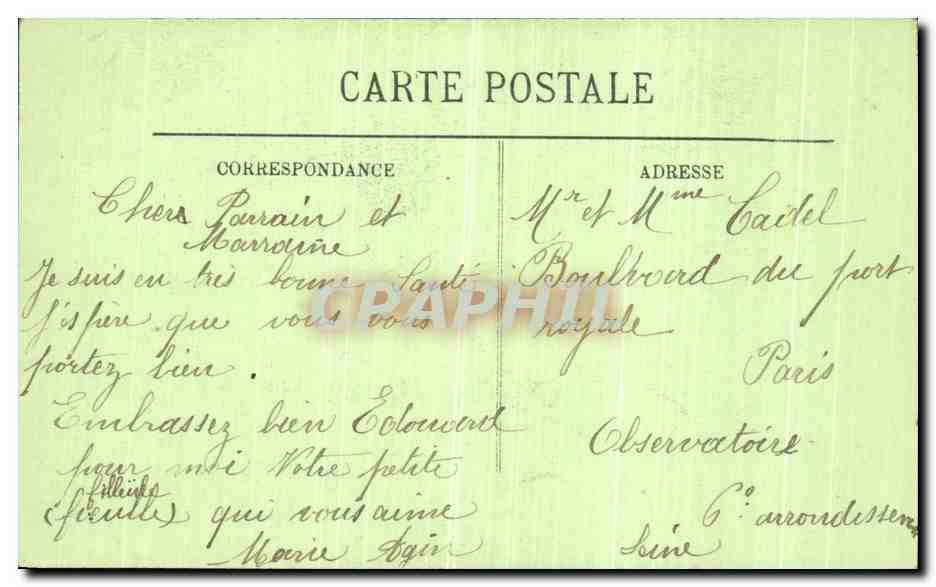 CARTE POSTALE
CORRESPONDANCE
Chers Parrain et
Marraine
Je suis en très bonne Santé
J'espère que vous vous
portez bien.
Embrassez bien Edouard
pour moi Votre petite
filleule
(fieulle) qui vous aime
Marie Agin
ADRESSE
Mr et Mme Cadel
Boulvard du port
royale
Paris
Observatoire
6e arrondissem
Seine
CPAPHIL